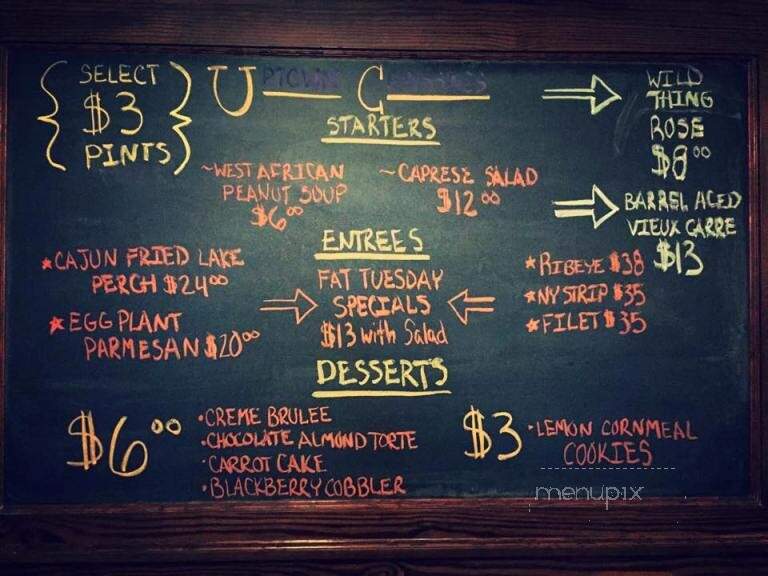 SELECT
$3
PINTS
UPTOWN C
STARTERS
~WEST AFRICAN
PEANUT SOUP
$6.00
~CAPRESE SALAD
$12.00
WILD
THING
ROSE
$8.00
BARREL AGED
VIEUX CARRE
$13
ENTREES
*CAJUN FRIED LAKE
PERCH $24.00
*EGGPLANT
PARMESAN $20.00
FAT TUESDAY
SPECIALS
$13 with Salad
*RIBEYE $38
*NY STRIP $35
*FILET $35
DESSERTS
$6.00
•CREME BRULEE
•CHOCOLATE ALMOND TORTE
•CARROT CAKE
•BLACKBERRY COBBLER
$3
•LEMON CORNMEAL
COOKIES
menupix